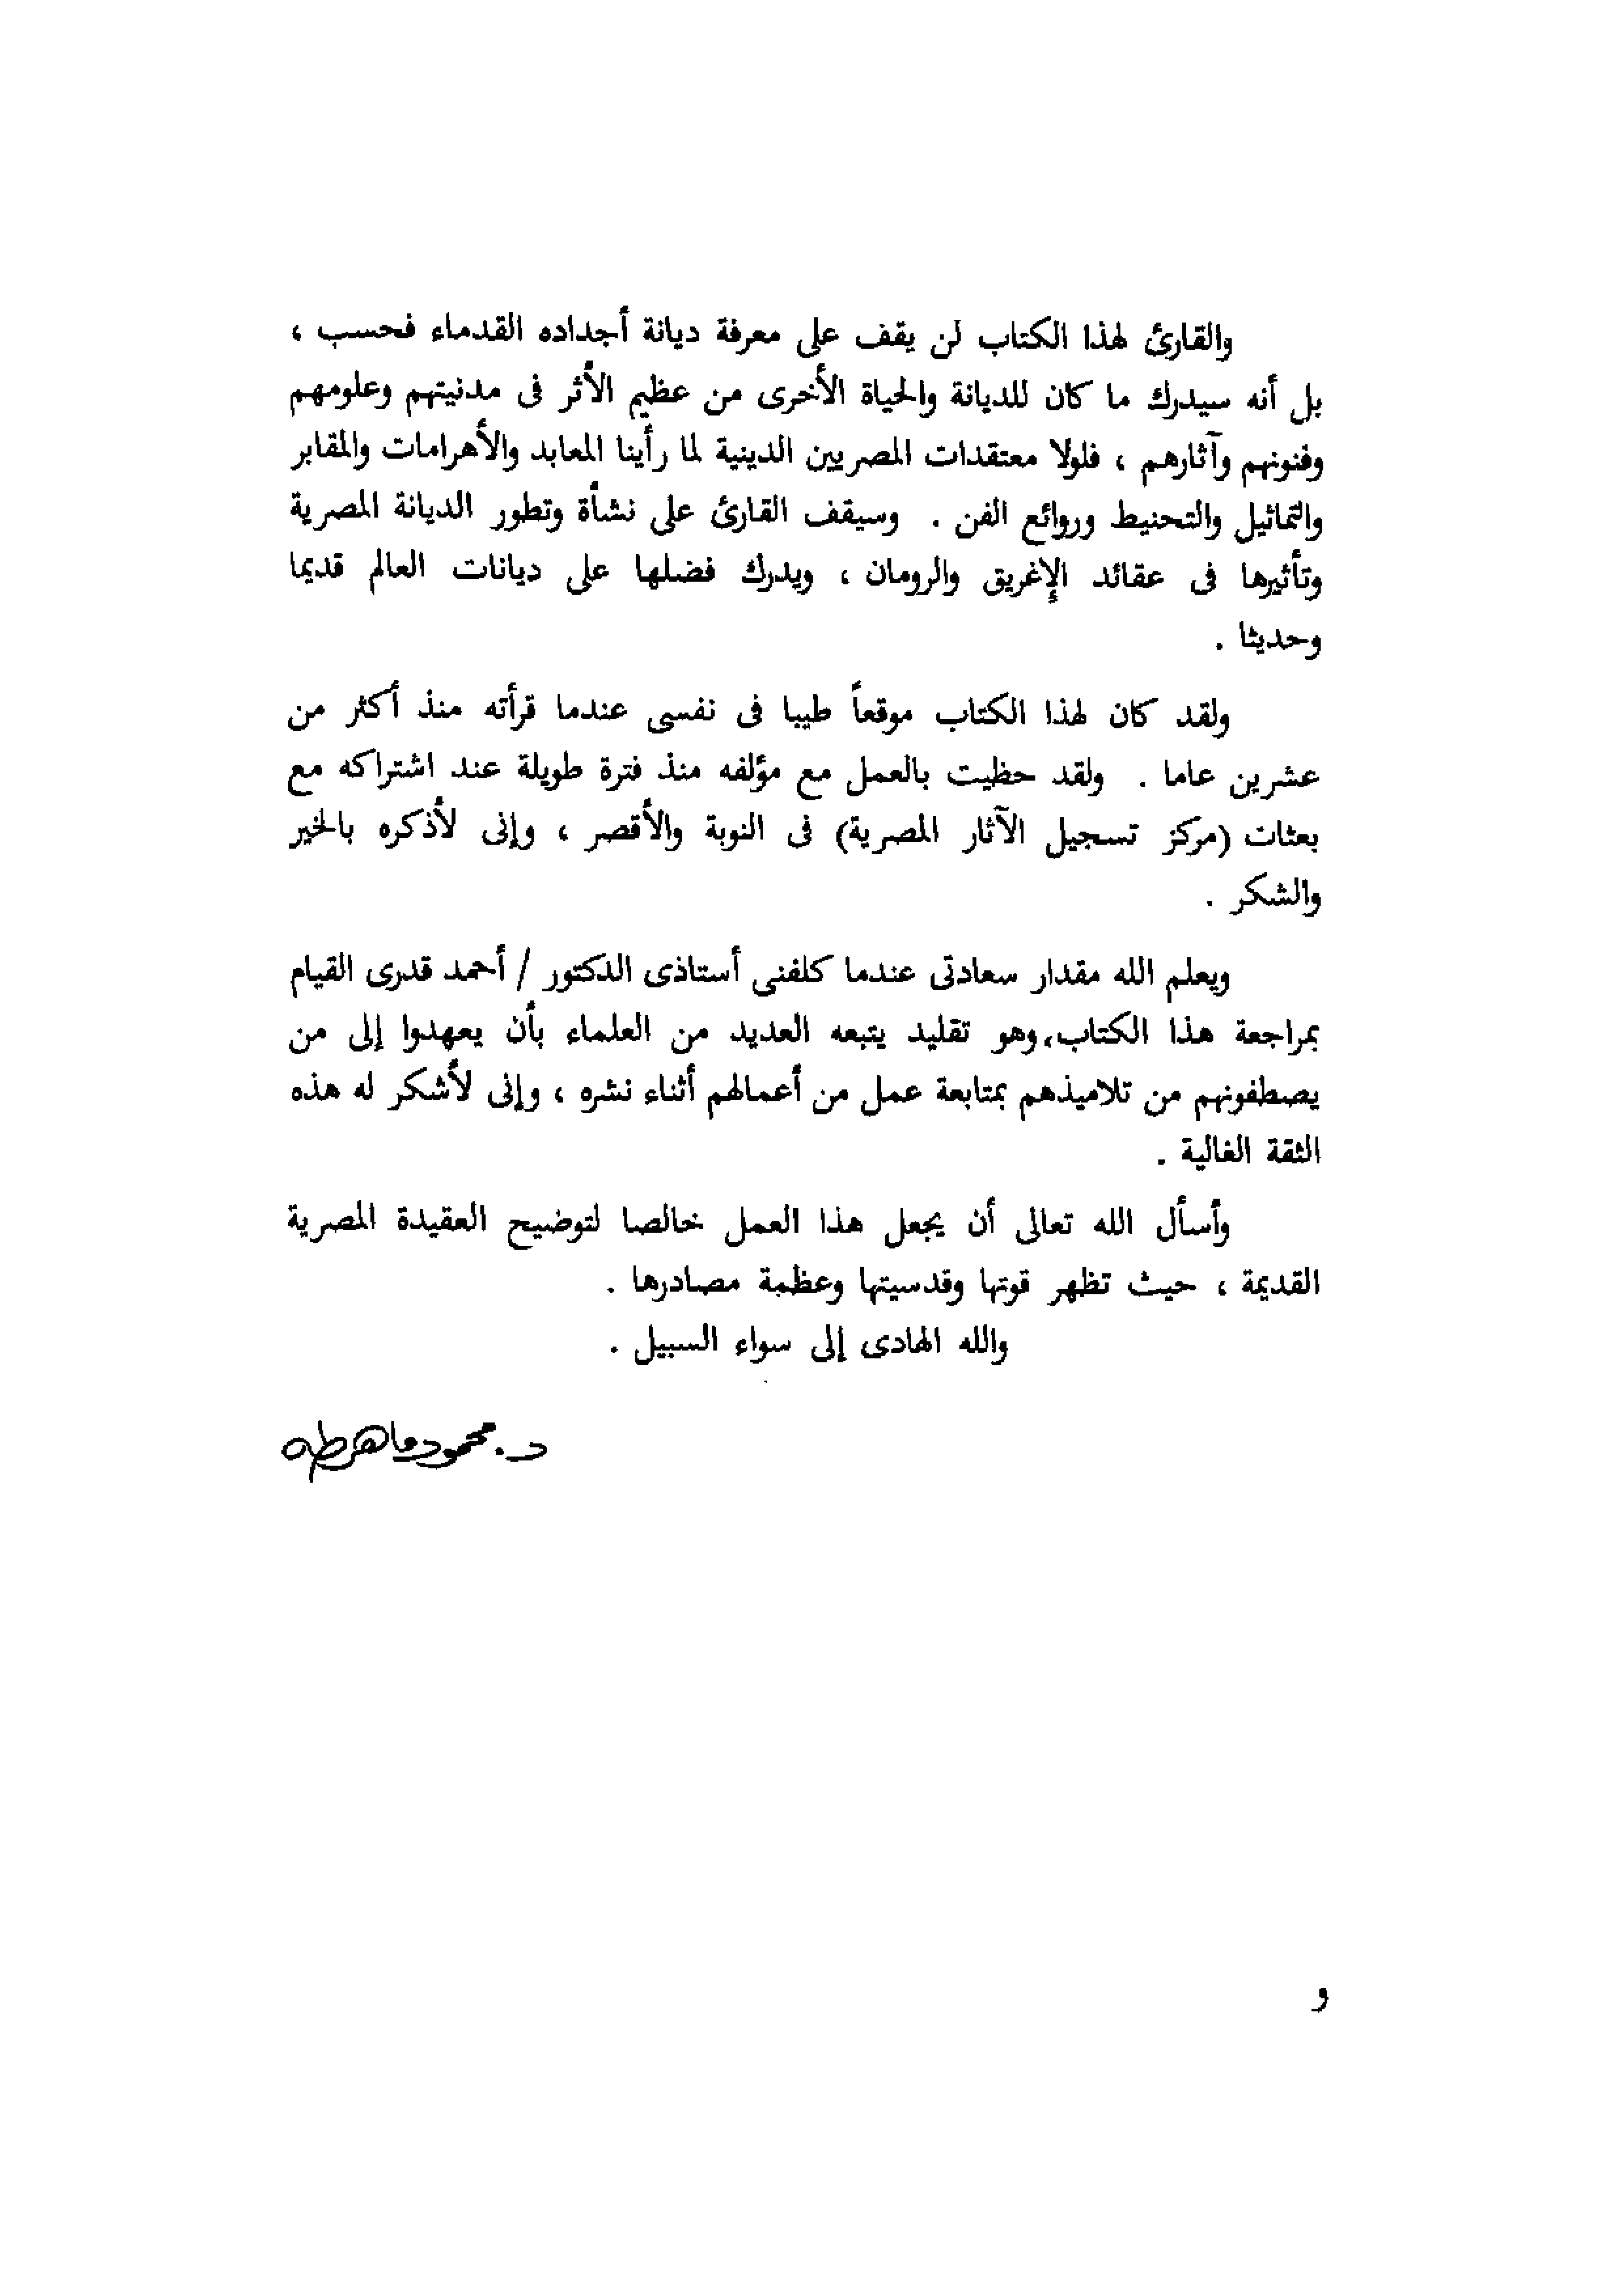 والقارئ لهذا الكتاب لن يقف على معرفة ديانة أجداده القدماء فحسب ،
بل أنه سيدرك ما كان للديانة والحياة الأخرى من عظيم الأثر فى مدنيتهم وعلومهم
وفنونهم وآثارهم ، فلولا معتقدات المصريين الدينية لما رأينا المعابد والأهرامات والمقابر
والتماثيل والتحنيط وروائع الفن . وسيقف القارئ على نشأة وتطور الديانة المصرية
وتأثيرها فى عقائد الإغريق والرومان ، ويدرك فضلها على ديانات العالم قديما
وحديثا .
ولقد كان لهذا الكتاب موقعاً طيبا فى نفسى عندما قرأته منذ أكثر من
عشرين عاما . ولقد حظيت بالعمل مع مؤلفه منذ فترة طويلة عند اشتراكه مع
بعثات (مركز تسجيل الآثار المصرية) فى النوبة والأقصر ، وإنى لأذكره بالخير
والشكر .
ويعلم الله مقدار سعادتى عندما كلفنى أستاذى الدكتور / أحمد قدرى القيام
بمراجعة هذا الكتاب، وهو تقليد يتبعه العديد من العلماء بأن يعهدوا إلى من
يصطفونهم من تلاميذهم بمتابعة عمل من أعمالهم أثناء نشره ، وإنى لأشكر له هذه
الثقة الغالية .
وأسأل الله تعالى أن يجعل هذا العمل خالصا لتوضيح العقيدة المصرية
القديمة ، حيث تظهر قوتها وقدسيتها وعظمة مصادرها .
والله الهادى إلى سواء السبيل .
د. محمود ماهر طه
و